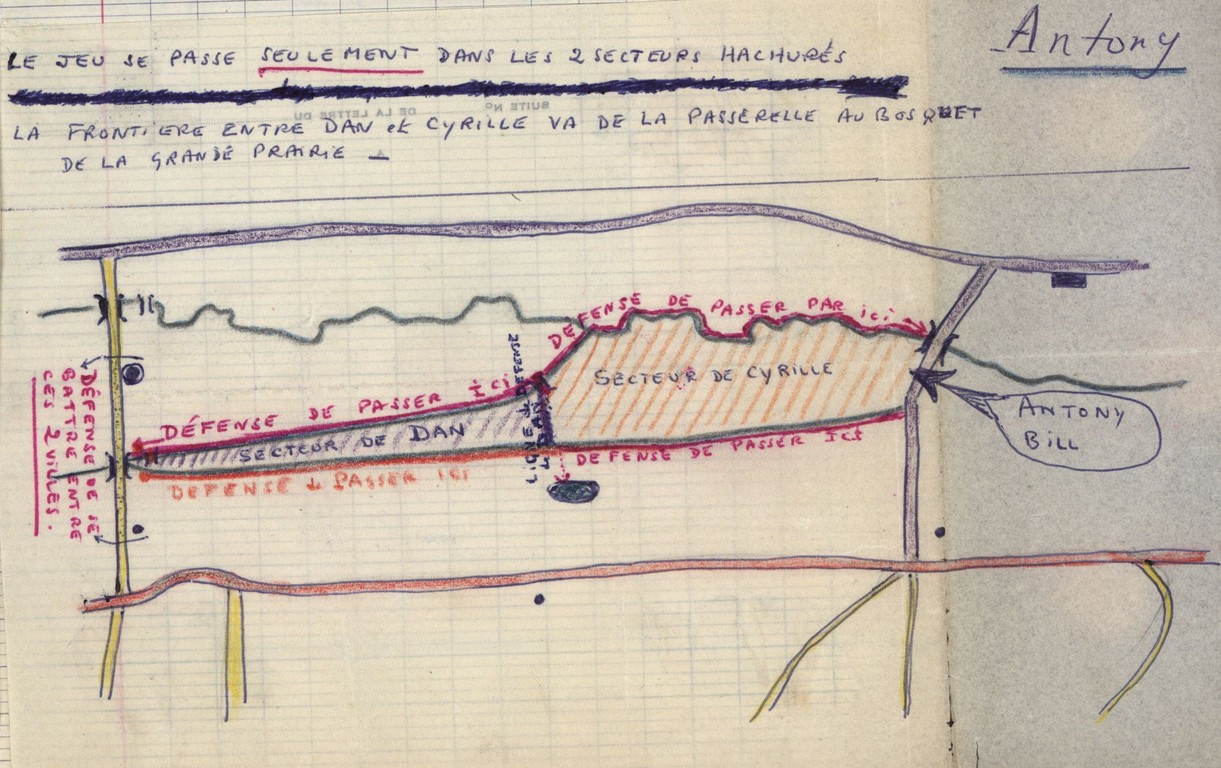 Antony
LE JEU SE PASSE SEULEMENT DANS LES 2 SECTEURS HACHURÉS
SUITE N°
DE LA LETTRE DU
LA FRONTIERE ENTRE DAN et CYRILLE VA DE LA PASSERELLE AU BOSQUET
DE LA GRANDE PRAIRIE
DEFENSE DE PASSER PAR ici
SECTEUR DE CYRILLE
ANTONY
BILL
DÉFENSE DE PASSER ici
SECTEUR DE DAN
DEFENSE DE PASSER ICI
DEFENSE d PASSER ICI
DÉFENSE DE SE
BATTRE ENTRE
CES 2 VILLES.